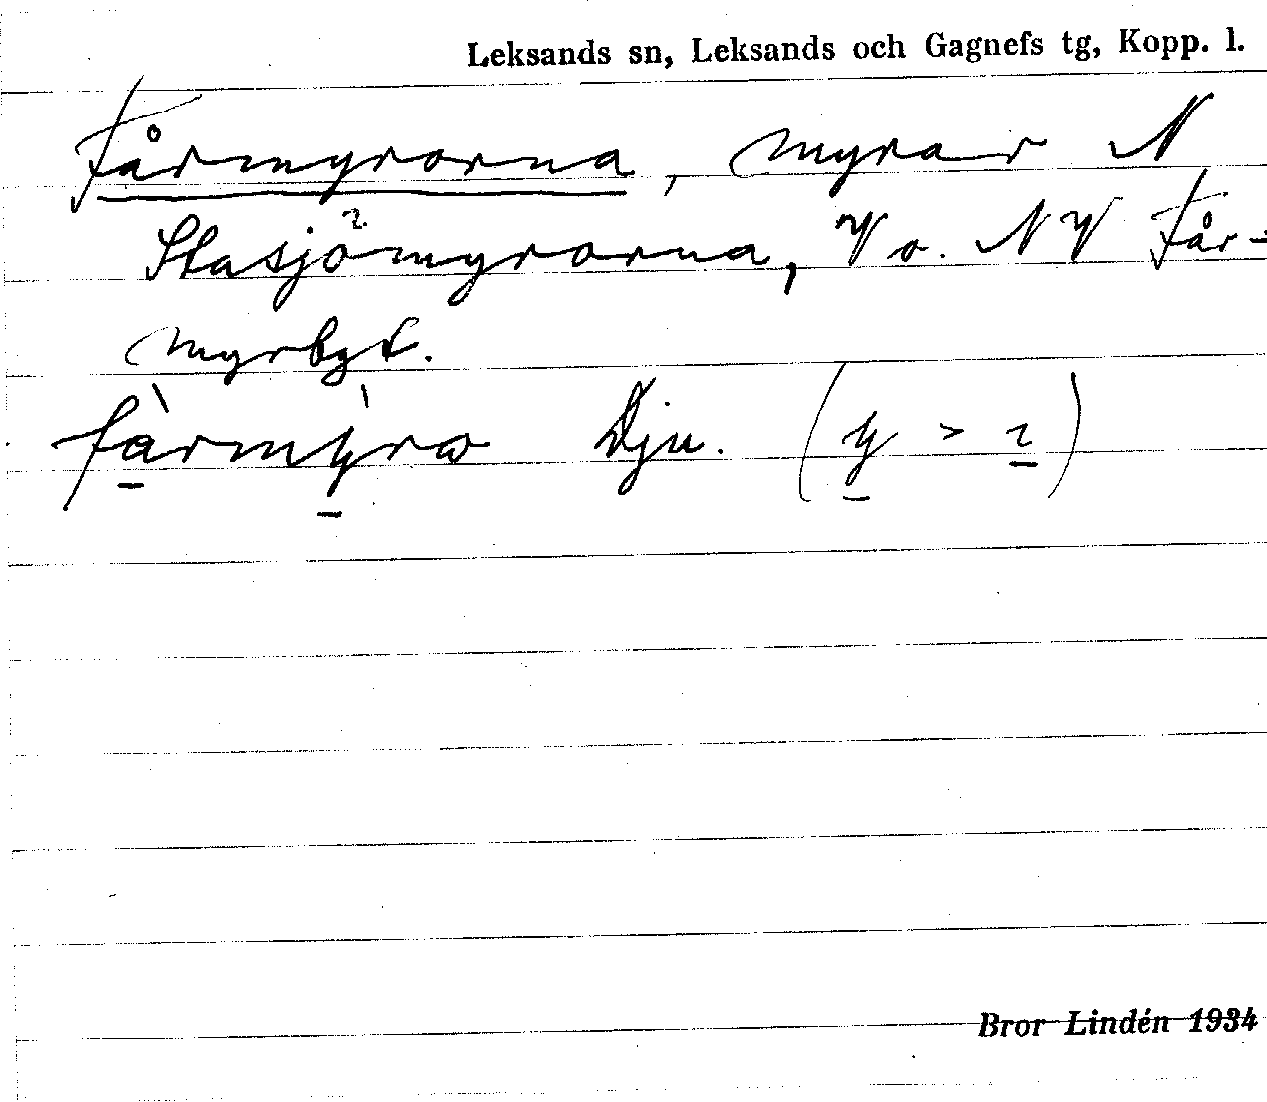 Leksands sn, Leksands och Gagnefs tg, Kopp. l.
Fårmyrorna, myrar N
Stasjömyrorna, V o. NV Får-
myrbgt.
fàrmỳra Dju. (y > ı)
Bror Lindén 1934